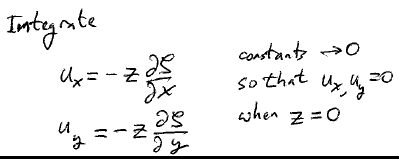 Integrate
u_x = - z ∂ζ/∂x
u_y = - z ∂ζ/∂y
constants → 0
so that u_x, u_y = 0
when z = 0